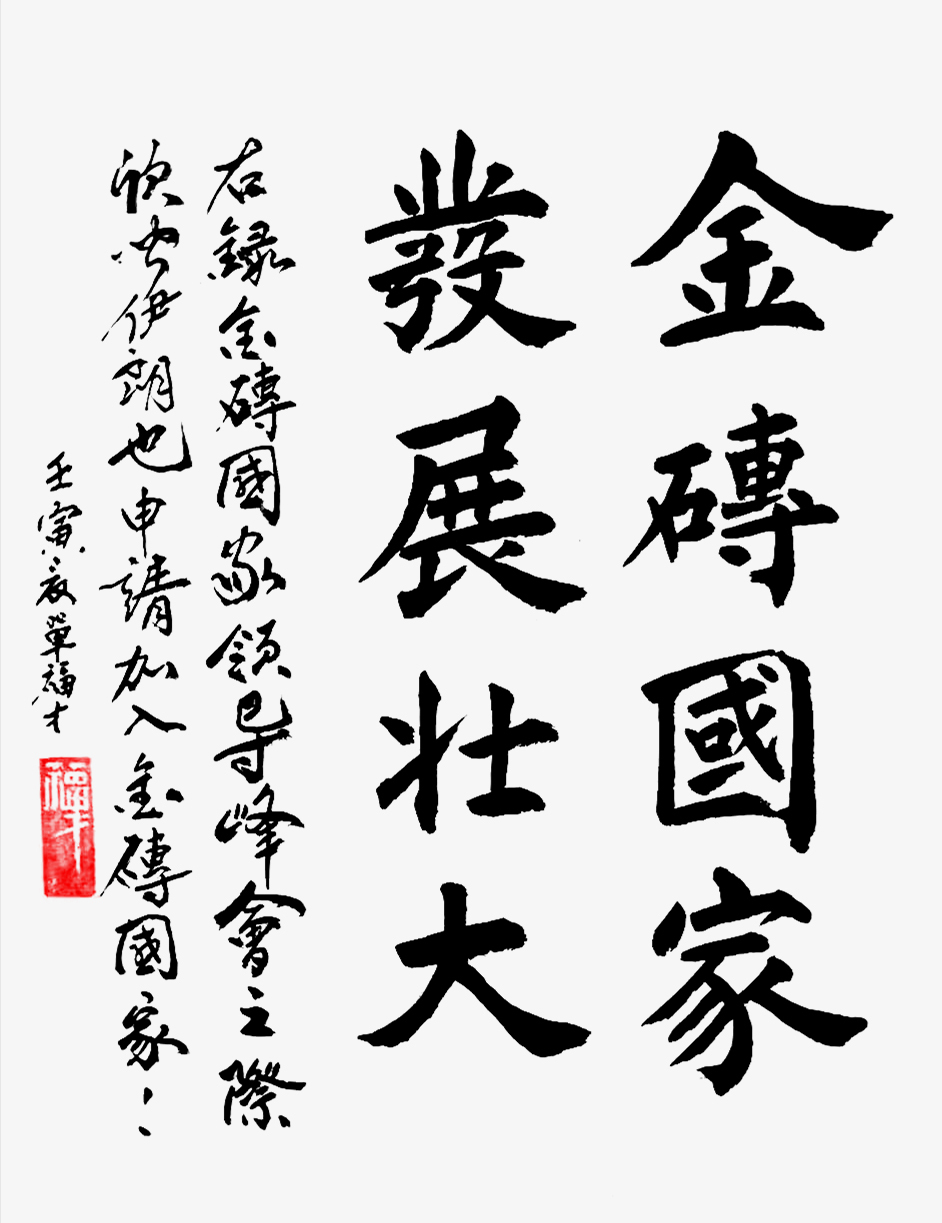 金磚國家
發展壯大
右錄金磚國家領导峰會之際
欣聞伊朗也申請加入金磚國家！
壬寅夏單福才